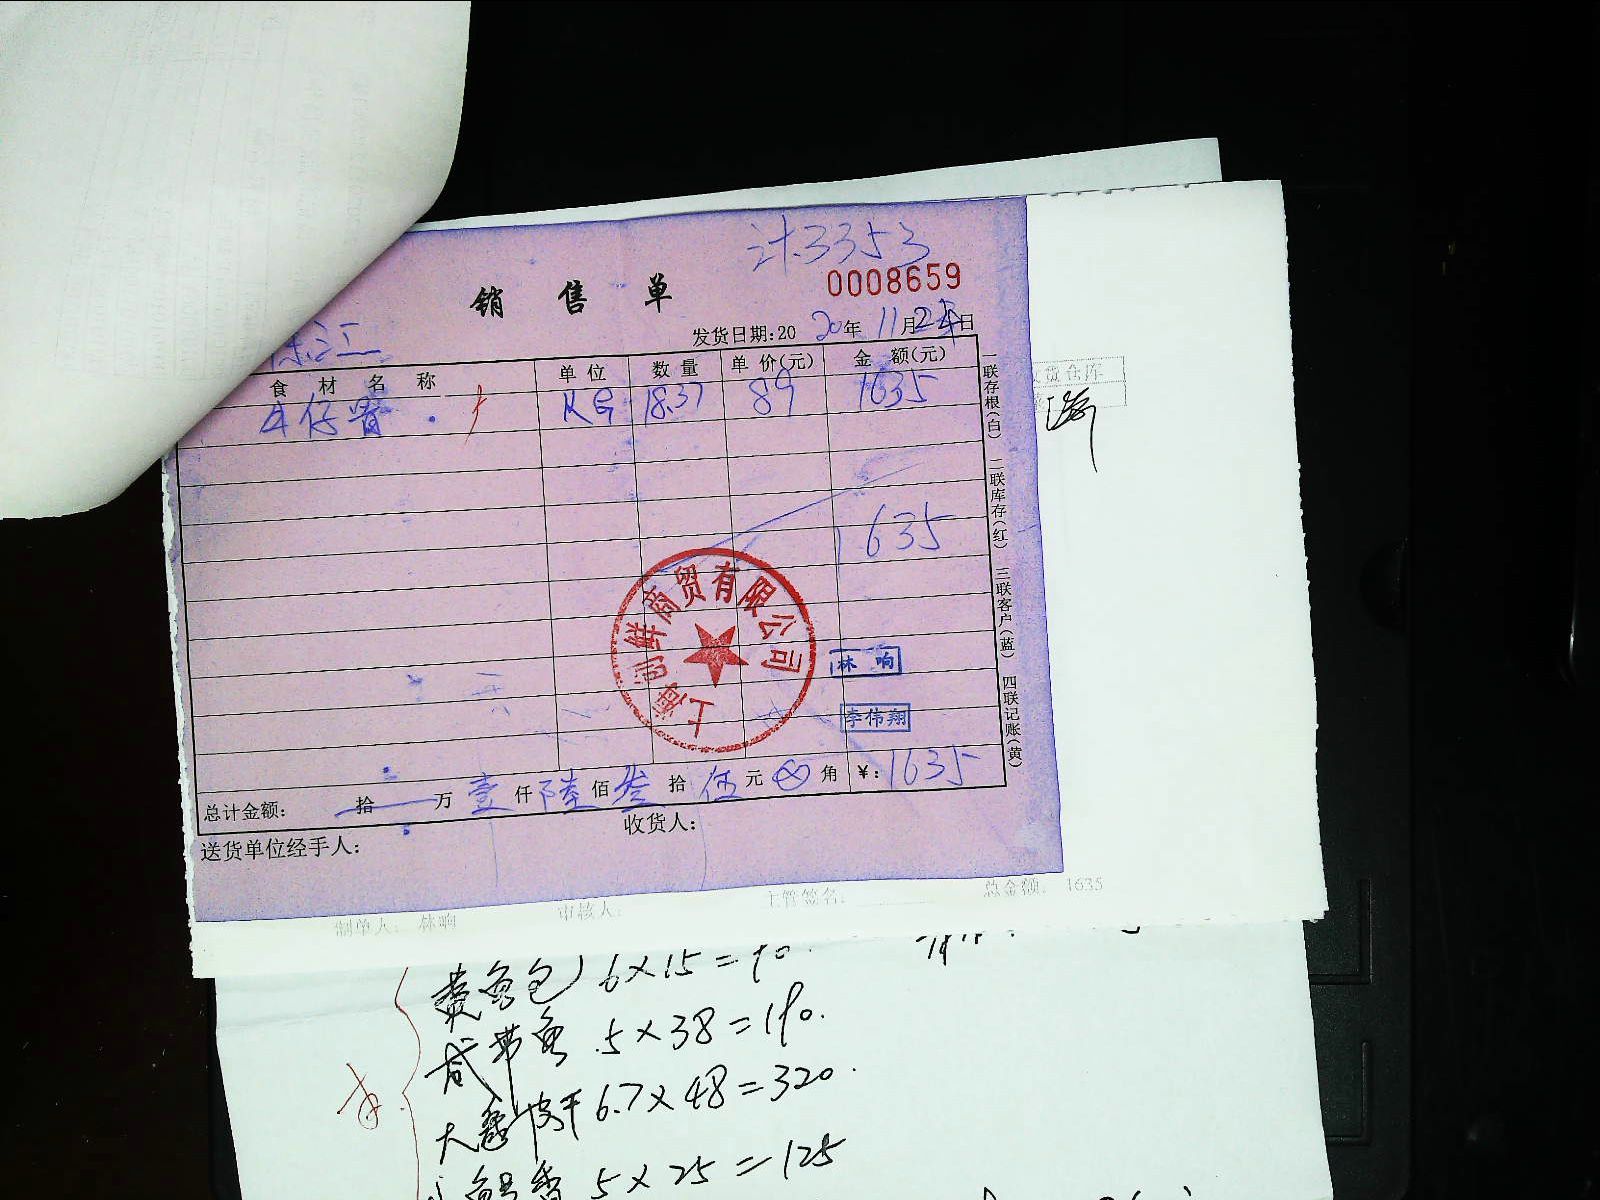 计3353
0008659
销售单
发货日期:2020年11月24日
食材名称 单位 数量 单价(元) 金额(元)
牛仔骨 KG 18.37 89 1635
1635
上海创鲜商贸有限公司
林响
李伟翔
总计金额: 拾 万 壹 仟 陆 佰 叁 拾 伍 元 角 ¥: 1635
送货单位经手人: 收货人:
一联存根(白) 二联库存(红) 三联客户(蓝) 四联记账(黄)
收货仓库
制单人: 林响 审核人: 主管签名: 总金额: 1635
6×15=90.
咸带鱼 5×38=190.
6.7×48=320.
5×25=125